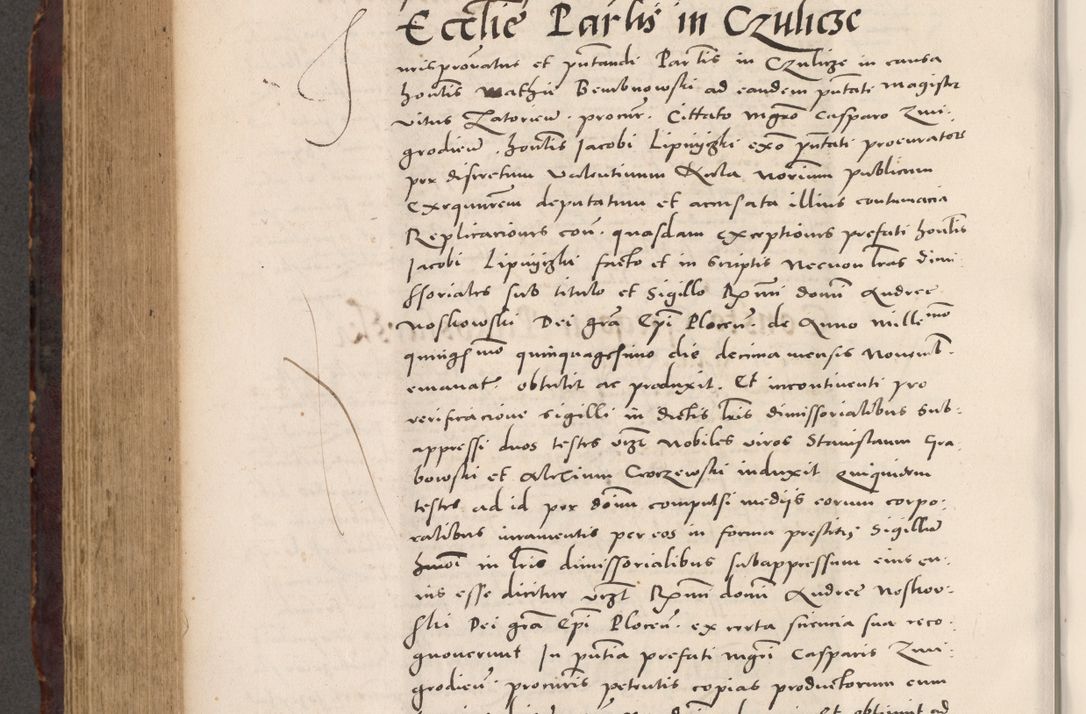 Eccl̄ie Parl̄is in Czulicze
Iuris pro᷑ratus et pn̄tandi Parl̄is in Czulicze in causa
hon̄lis Mathie Bembnowski ad eandem pn̄tati magister
vitus Zatorien̄. procur̄. Cittato mgr̄o Casparo Zmi-
grodien̄. hon̄lis Jacobi Lipnyczki ex̄o pn̄tati procuratore
per discretum Valentinum Rola notrium publicum
Exequutrem deputatum et accusata illius contumacia
Replicaciones con̄. quasdam exceptiones prefati hon̄lis
Jacobi Lipnyczki facto et in scriptis necnon l̄ras dimi-
ssoriales sub titulo et Sigillo Rxmi domi Andree
Noskowski Dei gr̄a Ep̄i Plocen̄. de Anno mille mo
quinges mo quinquagesimo die decima mensis Novemb.
emanat. obtulit ac produxit. Et incontinenti pro
verificacione sigilli in dictis l̄ris dimissorialibus sub-
appressi duos testes vizt nobiles viros Stanislaum Gra-
bowski et Alexium Crorzewski induxit Quiquidem
testes ad id per dom̄ compulsi medijs eorum corpo-
ralibus iuramentis per eos in forma prestitis Sigillum
hmoi in l̄ris dimissorialibus subappressum eius cu-
ius esse dicitur vizt Rxmi domi Andree Noskow-
ski Dei gr̄a Ep̄i Plocen̄. ex certa sciencia sua reco-
gnoverunt In pn̄tia prefati mgr̄i Casparis Zmi-
grodien̄. procuris petentis copias productorum cum
et obtinuit ad